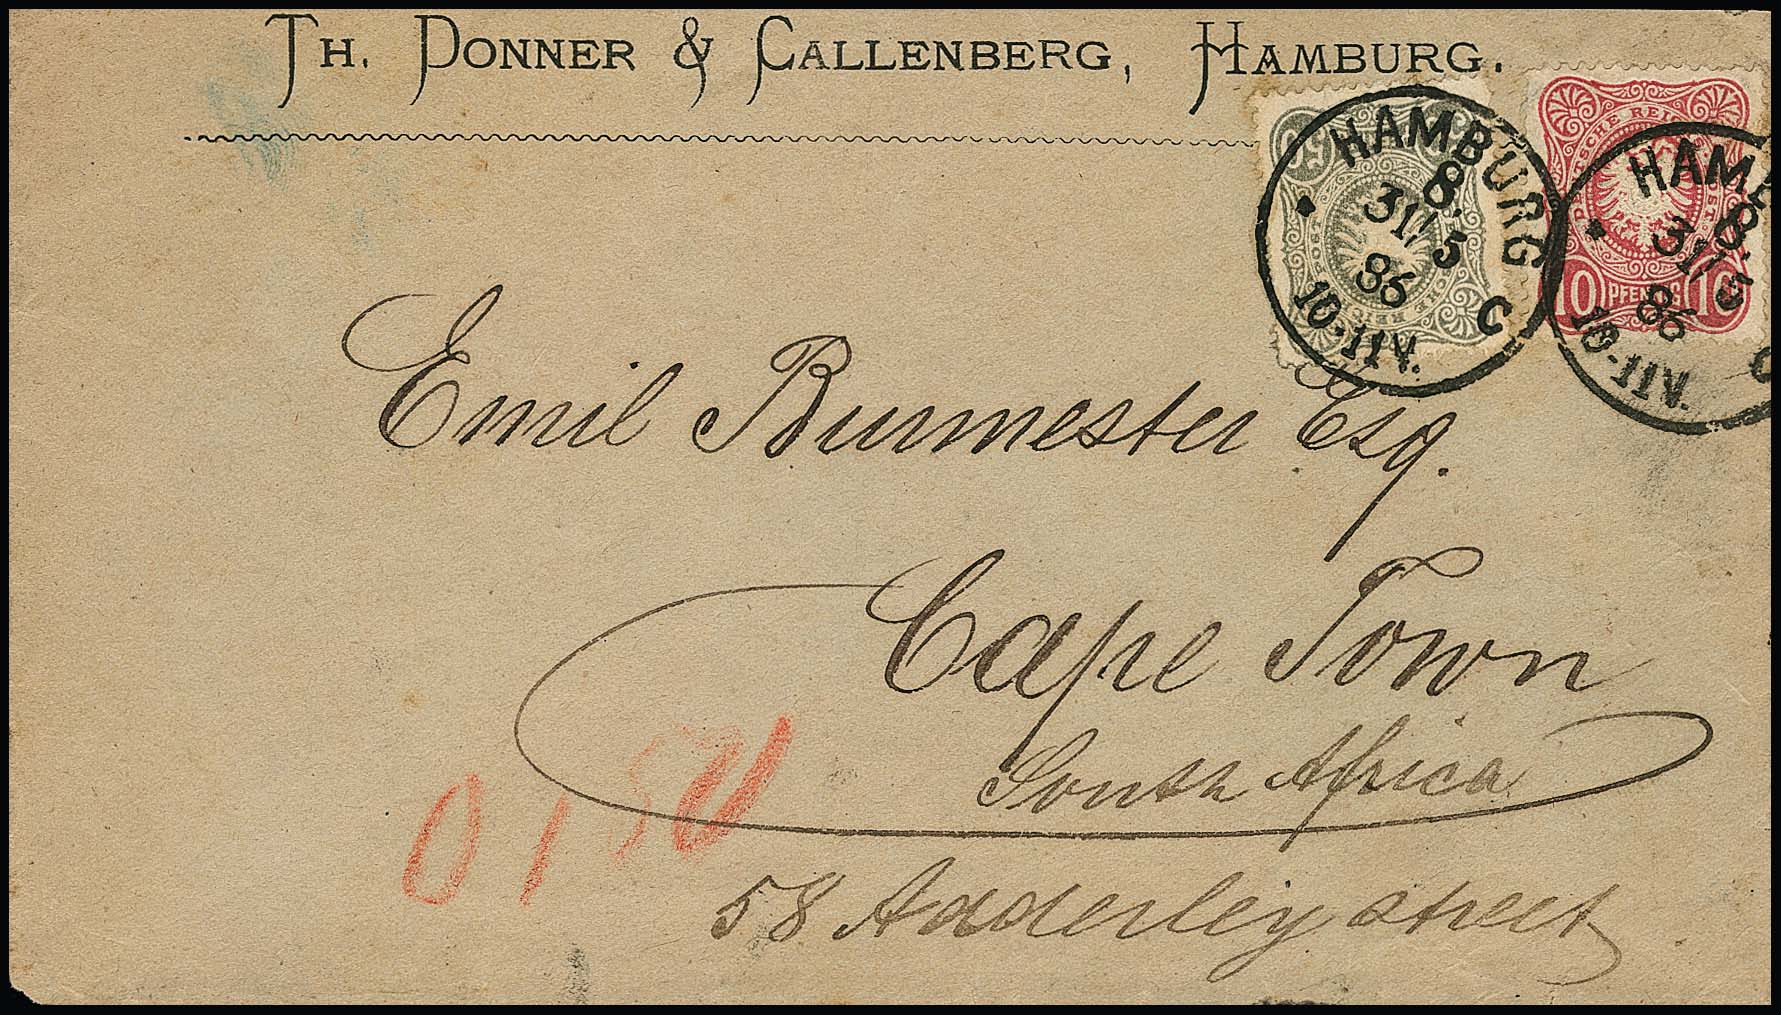 TH. DONNER & CALLENBERG, HAMBURG.
50
DEUTSCHE REICHS-POST
10 PFENNIG 10
HAMBURG
8.
31/5
86
10-11V.
C
HAMB
8.
31/5
86
10-11V.
Emil Burmester Esq.
Cape Town
South Africa
58 Adderley street